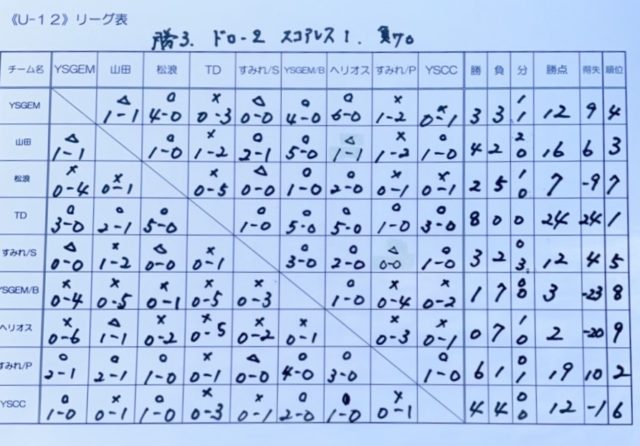 《U-12》リーグ表
勝3. ドロー2 スコアレス1. 負け0
チーム名 YSGEM 山田 松浪 TD すみれ/S YSGEM/B ヘリオス すみれ/P YSCC 勝 負 分 勝点 得失 順位
YSGEM △ 1-1 ○ 4-0 × 0-3 △ 0-0 ○ 4-0 ○ 6-0 × 1-2 × 0-1 3 3 1 1 12 9 4
山田 △ 1-1 ○ 1-0 × 1-2 ○ 2-1 ○ 5-0 △ 1-1 × 1-2 ○ 1-0 4 2 2 0 16 6 3
松浪 × 0-4 × 0-1 × 0-5 △ 0-0 ○ 1-0 ○ 2-0 × 0-1 × 0-1 2 5 7 -9 7
TD ○ 3-0 ○ 2-1 ○ 5-0 ○ 1-0 ○ 5-0 ○ 5-0 ○ 1-0 ○ 3-0 8 0 0 24 24 1
すみれ/S △ 0-0 × 1-2 △ 0-0 × 0-1 ○ 3-0 ○ 2-0 △ 0-0 ○ 1-0 3 2 0 3 12 4 5
YSGEM/B × 0-4 × 0-5 × 0-1 × 0-5 × 0-3 ○ 1-0 × 0-4 × 0-2 1 7 0 0 3 -23 8
ヘリオス × 0-6 △ 1-1 × 0-2 × 0-5 × 0-2 × 0-1 × 0-3 × 0-1 0 7 1 0 2 -20 9
すみれ/P ○ 2-1 ○ 2-1 ○ 1-0 × 0-1 △ 0-0 ○ 4-0 ○ 3-0 ○ 1-0 6 1 19 10 2
YSCC ○ 1-0 × 0-1 ○ 1-0 × 0-3 × 0-1 ○ 2-0 ○ 1-0 × 0-1 4 4 0 0 12 -1 6